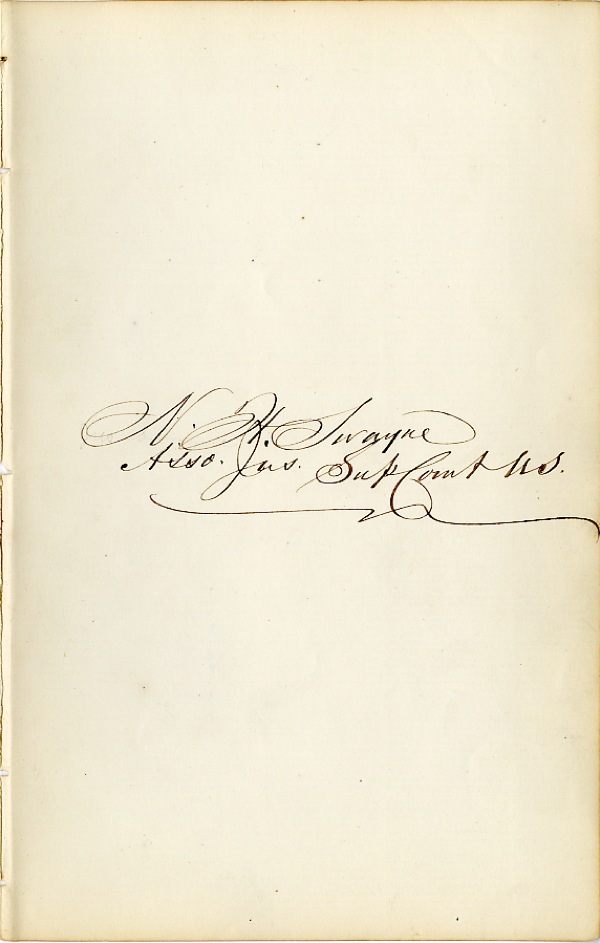 N. H. Swayne
Asso. Jus. Sup Court U.S.